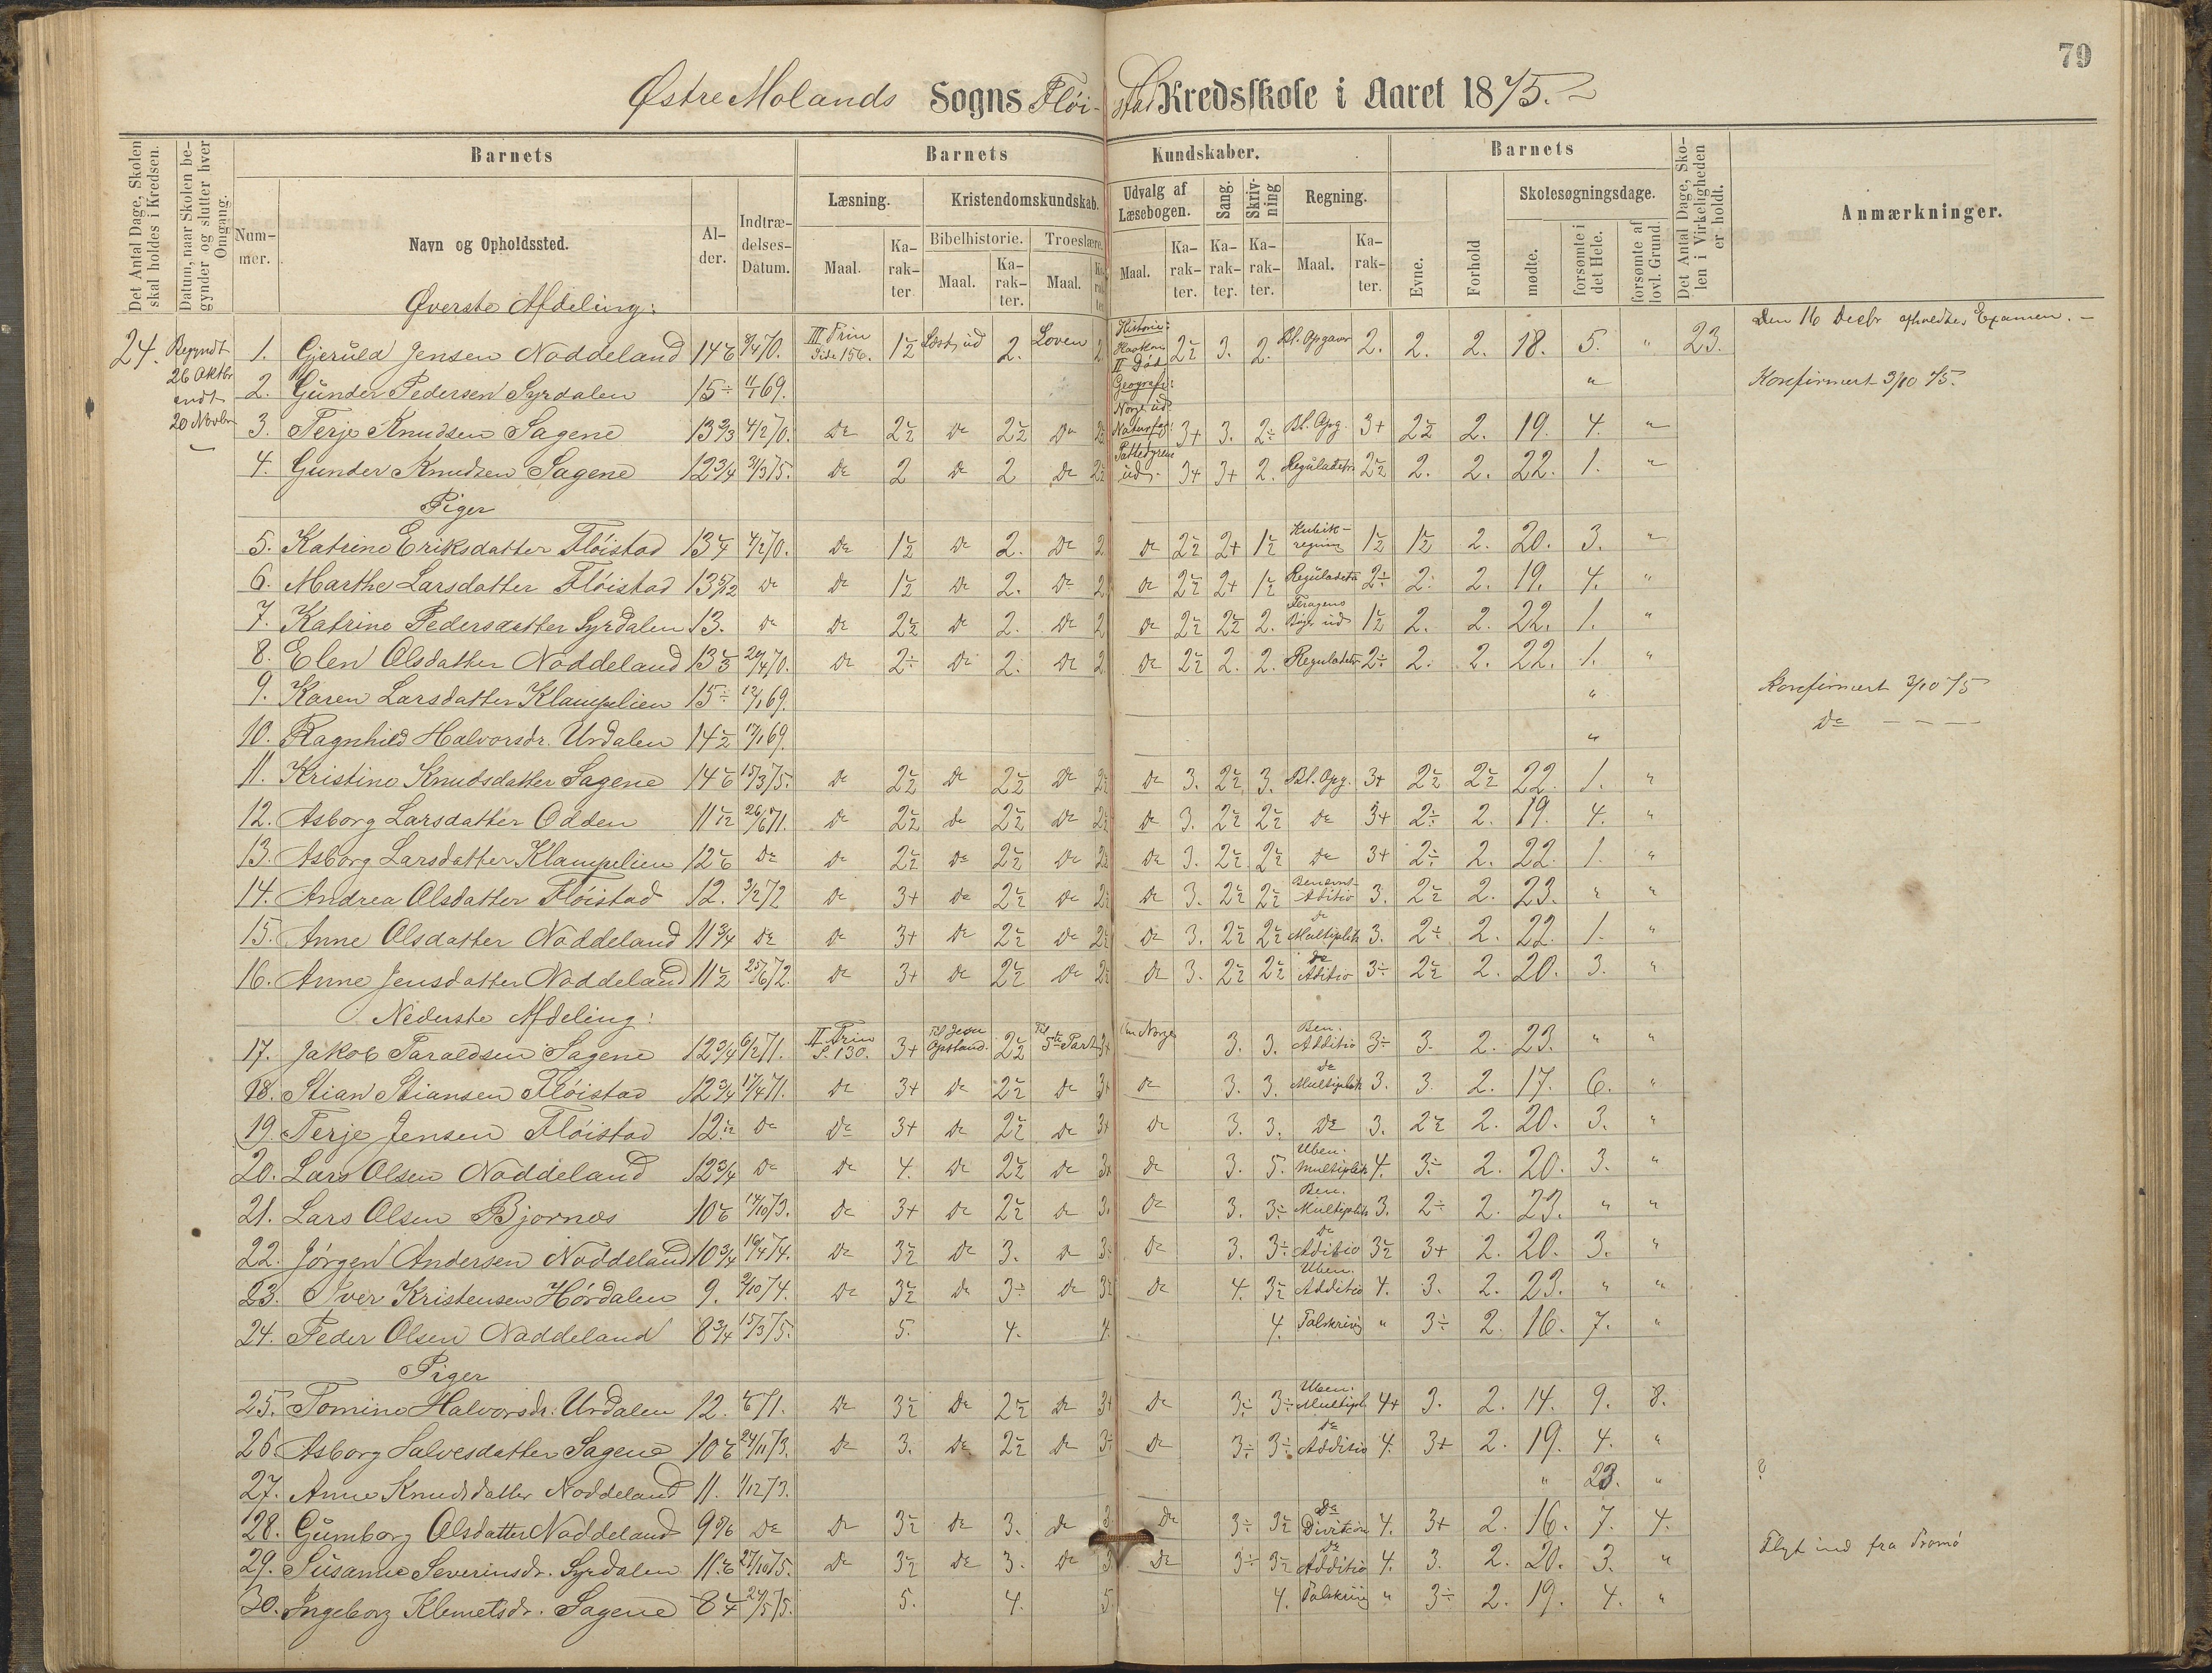 79
Østre Molands Sogns Flöi- stad Kredsskole i Aaret 1875.
Det Antal Dage, Skolen skal holdes i Kredsen.
Datum, naar Skolen begynder og slutter hver Omgang.
Barnets
Num-mer.
Navn og Opholdssted.
Al-der.
Indtræ-delses-Datum.
Barnets Kundskaber.
Læsning.
Maal.
Ka-rak-ter
Kristendomskundskab.
Bibelhistorie.
Maal.
Ka-rak-ter.
Troeslære.
Maal.
Udvalg af Læsebogen.
Maal.
Ka-rak-ter.
Sang.
Ka-rak-ter.
Skriv-ning
Ka-rak-ter.
Regning.
Maal.
Ka-rak-ter.
Barnets
Evne.
Forhold
Skolesøgningsdage.
mødte.
forsømte i det Hele.
forsømte af lovl. Grund.
Det Antal Dage, Sko-len i Virkeligheden er holdt.
Anmærkninger.
Øverste Afdeling:
Den 16 Decbr afholdtes Examen.
24. Begyndt 26 Oktbr endt 20 Novbr
1. Gjeruld Jensen Noddeland III Trin Side 156. Læst ud 2. Loven 3. 2. 2. 2. 2. 18. 5. " 23.
2. Gunder Pedersen Syrdalen 15÷ 69. " Konfirmert 3/10 75.
3. Terje Knudsen Sagene 13 2/3 4/2 70. Do Do Do 3+ 3. 2÷ Bl. Opg. 3+ 2. 19. 4. "
4. Gunder Knudsen Sagene 12 3/4 31/3 75. Do 2 Do 2 Do 3+ 3+ 2. Reguladetri 2. 2. 22. 1. "
Piger
5. Katrine Eriksdatter Flöistad 13 1/4 4/2 70. Do 1½ Do 2. Do 2 Do 2½ 2+ 1½ Kubik-regning 1½ 1½ 2. 20. 3. "
6. Marthe Larsdatter Flöistad 13 5/12 Do Do 1½ Do 2. Do 2 Do 2½ 2+ 1½ Reguladetri 2÷ 2. 2. 19. 4. "
7. Katrine Pedersdatter Syrdalen 13. Do Do 2½ Do 2. Do 2 Do 2½ 2½ 2. ud 1½ 2. 2. 22. 1. "
8. Elen Olsdatter Noddeland 13 1/3 20/4 70. Do 2÷ Do 2. Do 2 Do 2½ 2. 2. Reguladetri 2÷ 2. 2. 22. 1. "
9. Karen Larsdatter Klampelien 15÷ 12/1 69. " Konfirmert 3/10 75
10. Ragnhild Halvorsdr. Urdalen 14½ 69. " Do
11. Kristine Knudsdatter Sagene 14 1/6 15/3 75. Do 2½ Do 2½ Do Do 3. 2½ 3. Bl. Opg. 3+ 2½ 2½ 22. 1. "
12. Asborg Larsdatter Odden 11 1/12 26/6 71. Do 2½ Do 2½ Do Do 3. 2½ 2½ Do 3+ 2÷ 2. 19. 4. "
13. Asborg Larsdatter Klampelien 12 1/6 Do Do 2½ Do 2½ Do Do 3. 2½ 2½ Do 3+ 2÷ 2. 22. 1. "
14. Andrea Olsdatter Flöistad 12. 3/2 72 Do 3+ Do 2½ Do Do 3. 2½ 2½ Benevnt Aditio 3. 2½ 2. 23. " "
15. Anne Olsdatter Noddeland 11 3/4 Do Do 3+ Do 2½ Do Do 3. 2½ 2½ Do Multiplik 3. 2÷ 2. 22. 1. "
16. Anne Jensdatter Noddeland 11½ 25/6 72. Do 3+ Do 2½ Do Do 3. 2½ 2½ Do Aditio 3÷ 2½ 2. 20. 3. "
Nederste Afdeling:
17. Jakob Taraldsen Sagene 12 3/4 6/2 71. II Trin S. 130. 3+ Til Jesu Opstand. 2½ Til 5te Part 3+ Norge 3. 3. Ben. Additio 3÷ 3. 2. 23. " "
18. Stian Stiansen Flöistad 12 3/4 17/4 71. Do 3+ Do 2½ Do 3+ Do 3. 3. Do Multiplik 3. 3. 2. 17. 6. "
19. Terje Jensen Flöistad 12 1/12 Do Do 3+ Do 2½ Do 3+ Do 3. 3. Do 3. 2½ 2. 20. 3. "
20. Lars Olsen Noddeland 12 3/4 Do Do 4. Do 2½ Do 3+ Do 3. 5. Uben. Multiplik 4. 3÷ 2. 20. 3. "
21. Lars Olsen Bjornæs 10 1/6 14/10 73. Do 3+ Do 2½ Do 3. Do 3. 3÷ Ben. Multiplik 3. 2÷ 2. 23. " "
22. Jörgen Andersen Noddeland 10 3/4 74. Do 3½ Do 3. Do Do 3. 3÷ Do Aditio 3½ 3+ 2. 20. 3. "
23. Iver Kristensen Hördalen 9. 2/10 74. Do 3½ Do 3÷ Do 3½ Do 4. 3½ Uben. Additio 4. 3. 2. 23. " "
24. Peder Olsen Noddeland 8 3/4 15/3 75. 5. 4. 4. Talskrivg " 3÷ 2. 16. 7. "
Piger
25. Tomine Halvorsdr. Urdalen 12. 71. Do 3½ Do 2½ Do 3+ Do 3÷ 3÷ Uben. Multipl. 4+ 3. 2. 14. 9. 8.
26. Asborg Salvesdatter Sagene 10 1/6 24/11 73. Do 3. Do 2½ Do 3÷ Do 3÷ 3÷ Do Additio 4. 3+ 2. 19. 4. "
27. Anne Knudsdatter Noddeland 11. 1/12 73. " 23. " ?
28. Gumborg Olsdatter Noddeland 9 5/6 Do Do 3½ Do 3. Do 3 Do 3÷ 3½ Do Division 4. 3+ 2. 16. 7. 4.
29. Susanne Severinsdr. Syrdalen 11 1/6 27/10 75. Do 3½ Do 3. Do 3 Do 3÷ 3½ Do Additio 4. 3. 2. 20. 3. " Flyt ind fra Tromö
30. Ingeborg Klemetsdr. Sagene 8 1/4 24/5 75. 5. 4. 5. 4. Talskriv " 3÷ 2. 19. 4. "